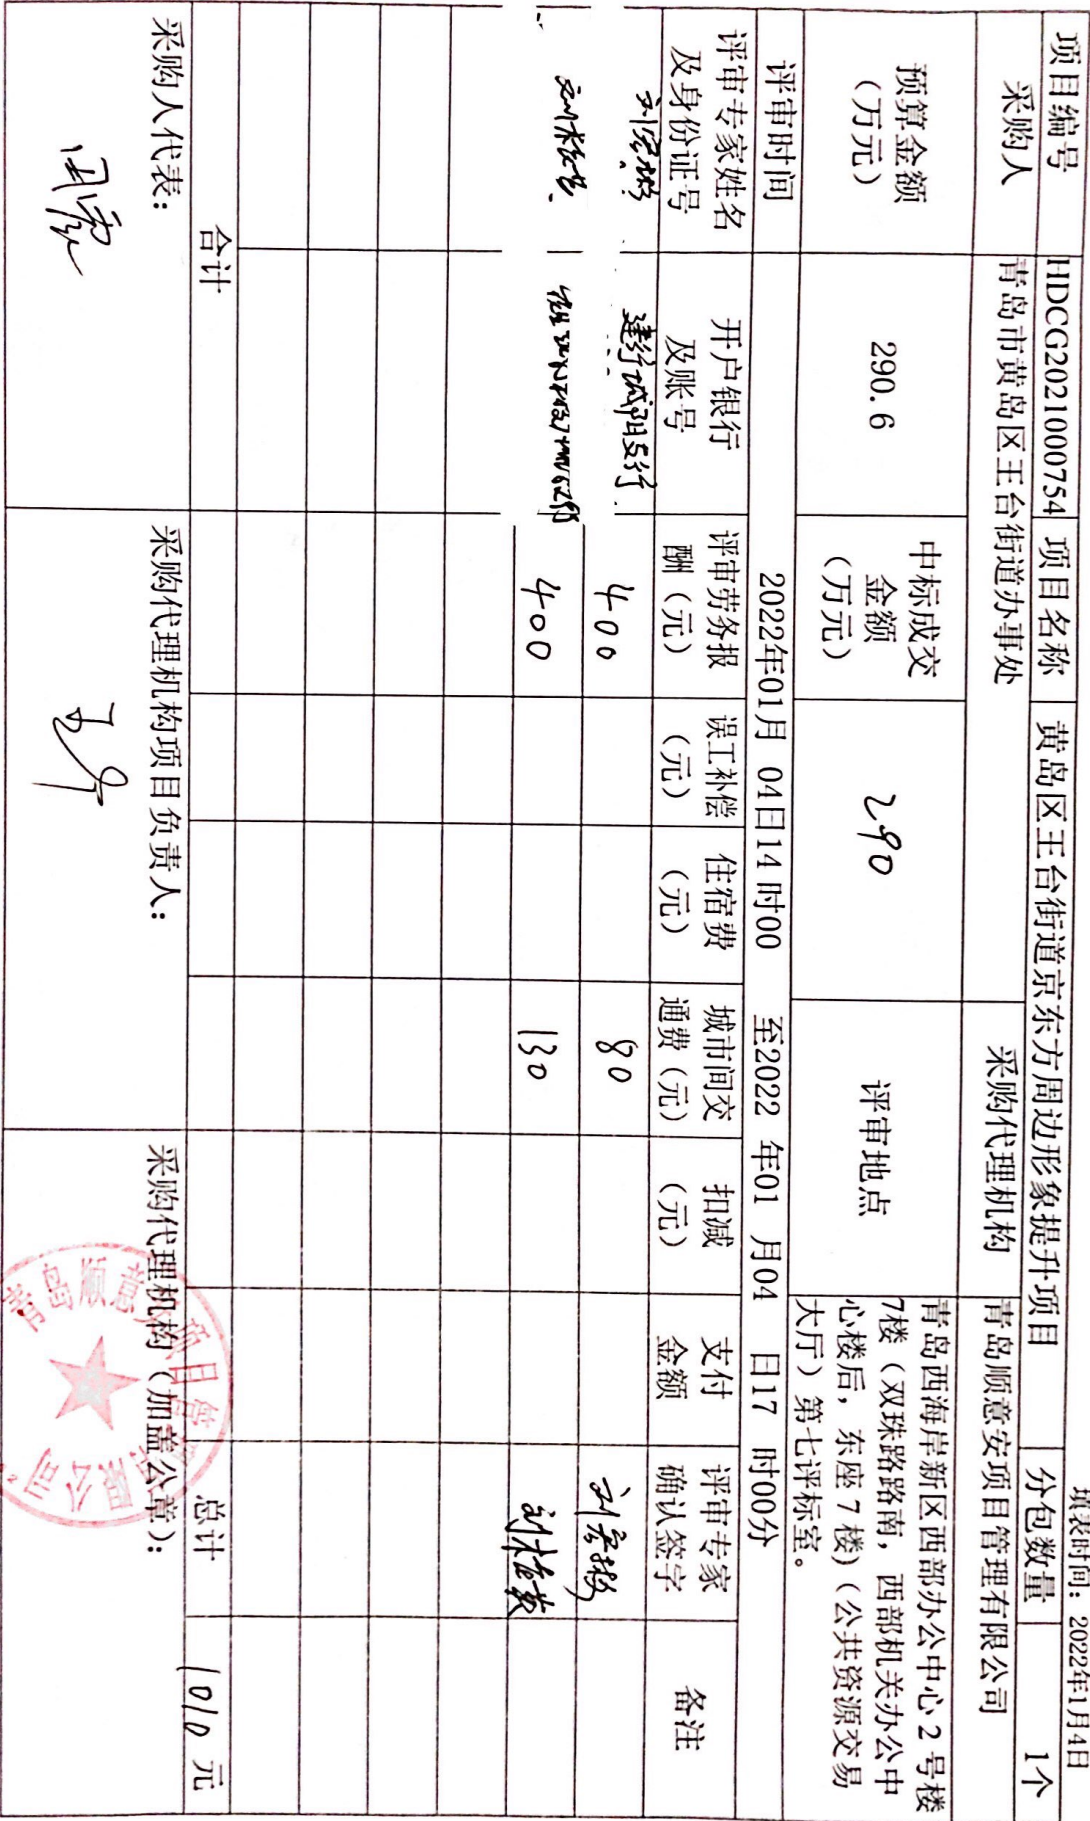 填表时间：2022年1月4日
项目编号 HDCG2021000754 项目名称 黄岛区王台街道京东方周边形象提升项目 分包数量 1个
采购人 青岛市黄岛区王台街道办事处 采购代理机构 青岛顺意安项目管理有限公司
预算金额
（万元）
290.6
中标成交
金额
（万元）
290
评审地点
青岛西海岸新区西部办公中心2号楼
7楼（双珠路路南，西部机关办公中
心楼后，东座7楼）（公共资源交易
大厅）第七评标室。
评审时间 2022年01月 04日14 时00 至2022 年01 月04 日17 时00分
评审专家姓名
及身份证号
开户银行
及账号
评审劳务报
酬（元）
误工补偿
（元）
住宿费
（元）
城市间交
通费（元）
扣减
（元）
支付
金额
评审专家
确认签字
备注
建行城阳支行 400 80
400 130
合计 总计 1010 元
采购人代表：
采购代理机构项目负责人：
采购代理机构（加盖公章）：